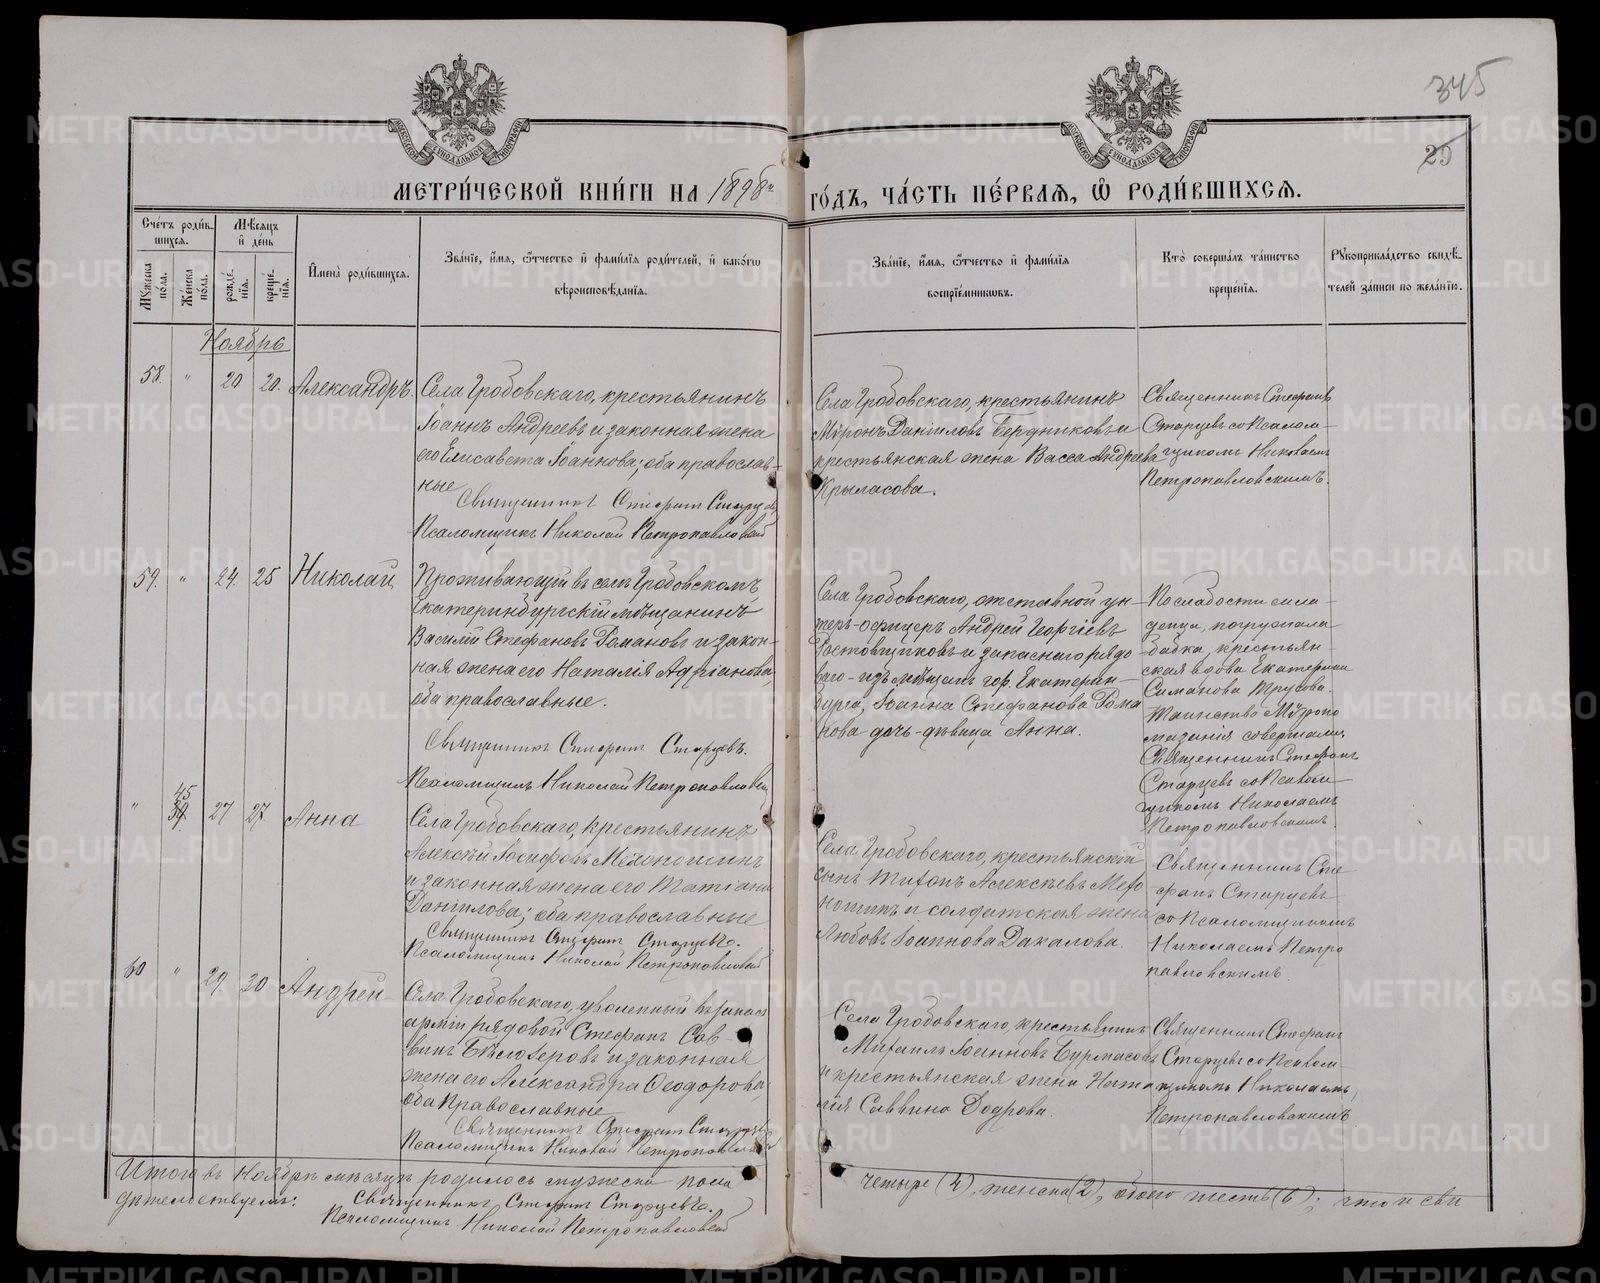 345
29
МЕТРИ́ЧЕСКОЙ КНИ́ГИ НА 1898й ГО́ДЪ, ЧА́СТЬ ПЕ́РВАЯ, Ѡ РОДИ́ВШИХСЯ.
Сче́тъ роди́в-
шихся.
Мѣ́сяцъ
и де́нь
Му́жеска
по́ла.
Же́нска
по́ла.
рожде́-
нія.
креще́-
нія.
Имена̀ роди́вшихся.
Зва́ніе, и́мя, о́тчество и фами́лія роди́телей, и како́гѡ
вѣроисповѣ́данія.
Зва́ніе, и́мя, о́тчество и фами́лія
воспріе́мниковъ.
Кто̀ соверша́лъ та́инство
креще́нія.
Рукоприкла́дство свидѣ́-
телей за́писи по жела́нію.
Ноябрь
58. " 20 20. Александръ.
Села Гробовскаго, крестьянинъ
Іоаннъ Андреевъ и законная жена
его Елисавета Іоаннова; оба православ-
ные
Священникъ Стефанъ Старцевъ
Псаломщикъ Николай Петропавловскій
Села Гробовскаго, крестьянинъ
Мѵронъ Даніиловъ Бердниковъ и
крестьянская жена Васса Андреева
Крыласова.
Священникъ Стефанъ
Старцевъ со Псалом-
щикомъ Николаемъ
Петропавловскимъ.
59. " 24. 25 Николай,
Проживающій въ селѣ Гробовскомъ,
Екатеринбургскій мѣщанинъ
Василій Стефановъ Романовъ и закон-
ная жена его Наталія Адріанова,
оба православные.
Священникъ Стефанъ Старцевъ.
Псаломщикъ Николай Петропавловскій
Села Гробовскаго, отставной ун-
теръ-офицеръ Андрей Георгіевъ
Ростовщиковъ и запаснаго рядо
ваго-изъ мѣщанъ гор. Екатерин-
бурга, Іоанна Стефанова Рома
нова дочь-дѣвица Анна.
По слабости мла-
денца, погружала
бабка, крестьян-
ская вдова Екатерина
Симанова Трусова.
Таинство Мѵропо
мазанія совершали,
Священникъ Стефанъ
Старцевъ со Псалом
щикомъ Николаемъ
Петропавловскимъ.
" 45 39. 27 27. Анна
Села Гробовскаго, крестьянинъ
Алексѣй Іосифовъ Мехоношинъ
и законная жена его Татіана
Даніилова; оба православные
Священникъ Стефанъ Старцевъ.
Псаломщикъ Николай Петропавловскій
Села Гробовскаго, крестьянской
сынъ Тихонъ Алексѣевъ Мехо
ношинъ и солдатская жена
Любовь Іоаннова Дакалова.
Священникъ Сте
фанъ Старцевъ
со Псаломщикомъ
Николаемъ Петро
павловскимъ.
60 " 29. 30 Андрей
Села Гробовскаго, уволенный въ запасъ
арміи рядовой Стефанъ Сав-
винъ Бѣлозеровъ и законная
жена его Александра Ѳеодорова,
оба православные
Священникъ Стефанъ Старцевъ
Псаломщикъ Николай Петропавловскій
Села Гробовскаго, крестьянинъ
Михаилъ Іоанновъ Бурмасовъ
и крестьянская жена Ната
лія Саввина Доврова.
Священникъ Стефанъ
Старцевъ со Псалом-
щикомъ Николаемъ
Петропавловскимъ
Итого въ Ноябрѣ мѣсяцѣ родилось мужеска пола четыре (4), женска (2), обоего шесть (6); что и сви
дѣтельствуемъ:
Священникъ Стефанъ Старцевъ.
Псаломщикъ Николай Петропавловскій